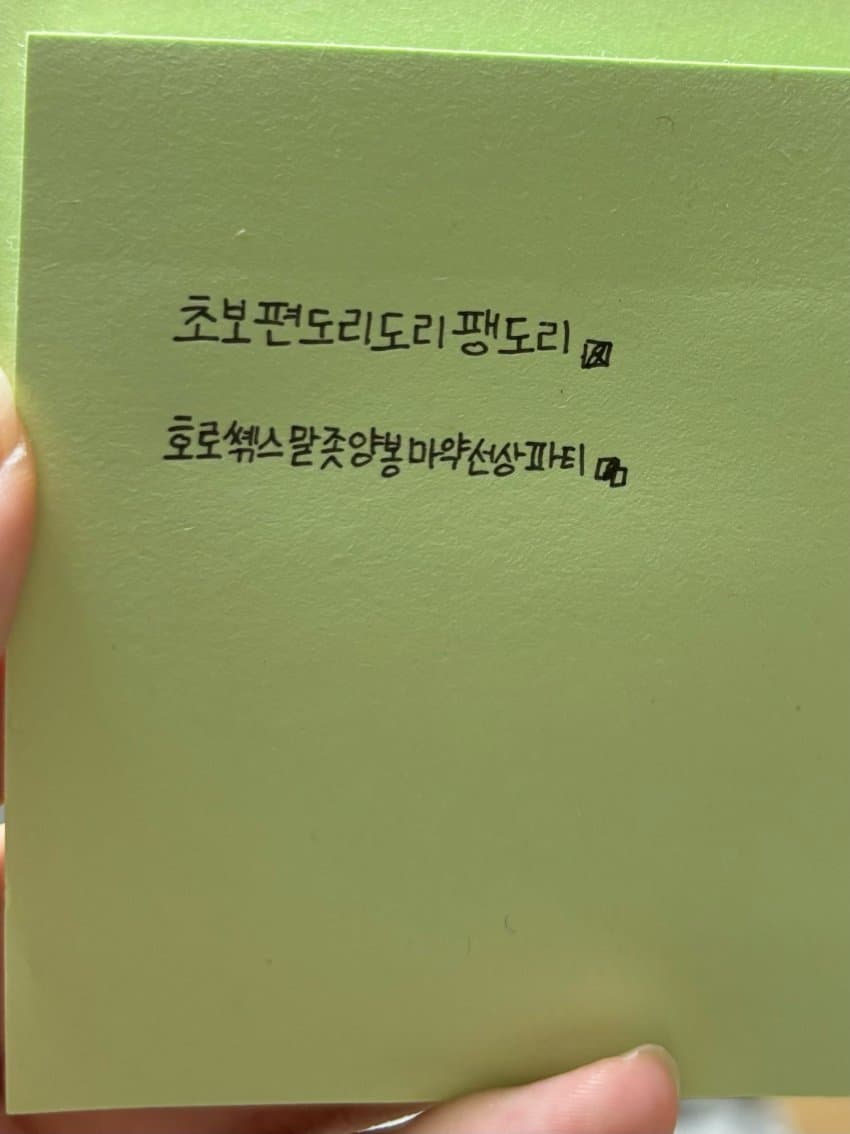 초보편도리도리팽도리
호로쎆스말좃양봉마약선상파티